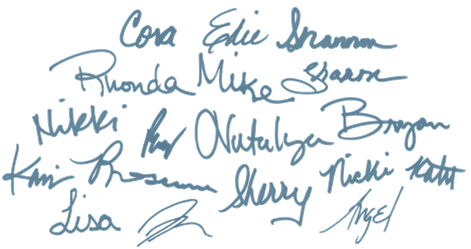 Cora Edie Shannon
Rhonda Mike Sharon
Nikki Natalya Bryan
Kim Sherry Nicki Kathi
Lisa Angel